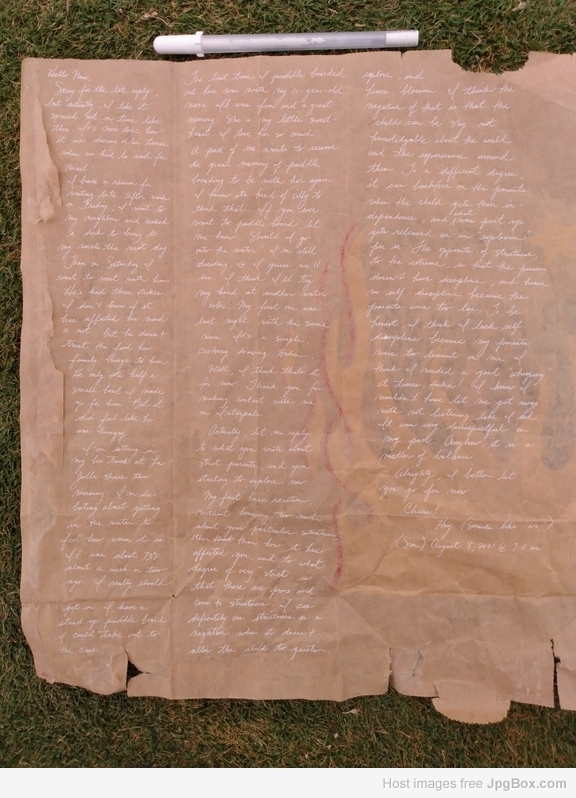 Hello
Sorry for the late reply
but actually I like it
spread out in time like
this. It's more like how
it was during older times
when we had to wait for
mail.
I have a reason for
writing late. After work
on Friday I went to
my neighbor and asked
to
my the next day
Then on Saturday I
went to visit with him
He's had three strokes
I don't know if it
has affected his mind
or not but he doesn't
trust the food his
family brings to him
He only ate half a
small bowl I made
go for him. But it
did feel like he
was hungry.
I'm sitting in
my box truck at La
Jolla Shores this
morning. I'm de
bating about getting
in the water to
feel how warm it is
It was about 73°F
about a week or two
ago. I really should
get in. I have a
stand up paddle board
I could take out to
the cove
The last time I paddle boarded
it here was with my 12-year-old
niece. It was fun and a great
memory. She is my little sweet
heart. I love her so much.
A part of me wants to reserve
the great memory of paddle
boarding to be with her again
I know it's kind of silly to
think that. If you ever
want to paddle board, let
me know. Should I go
into the water. I'm still
deciding so I guess we'll
see. I think I'll try
my hand at another water
color. My first one was
last night with the same
niece. It's a single
curving
Well I think that's it
for now. Thank you for
making contact with me
on
Actually, let me reply
to what you wrote about
strict parents and you
starting to explore now
My first here reaction
without knowing too much
about your particular
other than how it has
affected you and to what
degree of very strict is
that there are pros and
cons to strictness. I can
definitely see strictness as a
negative when it doesn't
allow the child to question,
explore, and
hence blossom. I think the
negative of that is that the
child can be very not
knowledgeable about the world
and the experiences around
them. To a different degree
it can backfire on the parents
when the child gets their in
dependence, and what pent up
gets released in an explosion
per se. The opposite of strictness
to the extreme, is that the person
doesn't have discipline, and hence
no self discipline because the
parents were too lax. To be
honest I think I lack self
discipline because my parents
were too lenient on me. I
think I needed a good
at times haha! I know if I
wouldn't have let me get away
with not listening like I did
It was very disrespectful on
my part. Anyhow it is a
matter of balance
Alrighty, I better let
you go for now
Cheers!
Hoy (sounds like
(Sun) August 8, 2021 @ 7:11 am
Host images free JpgBox.com